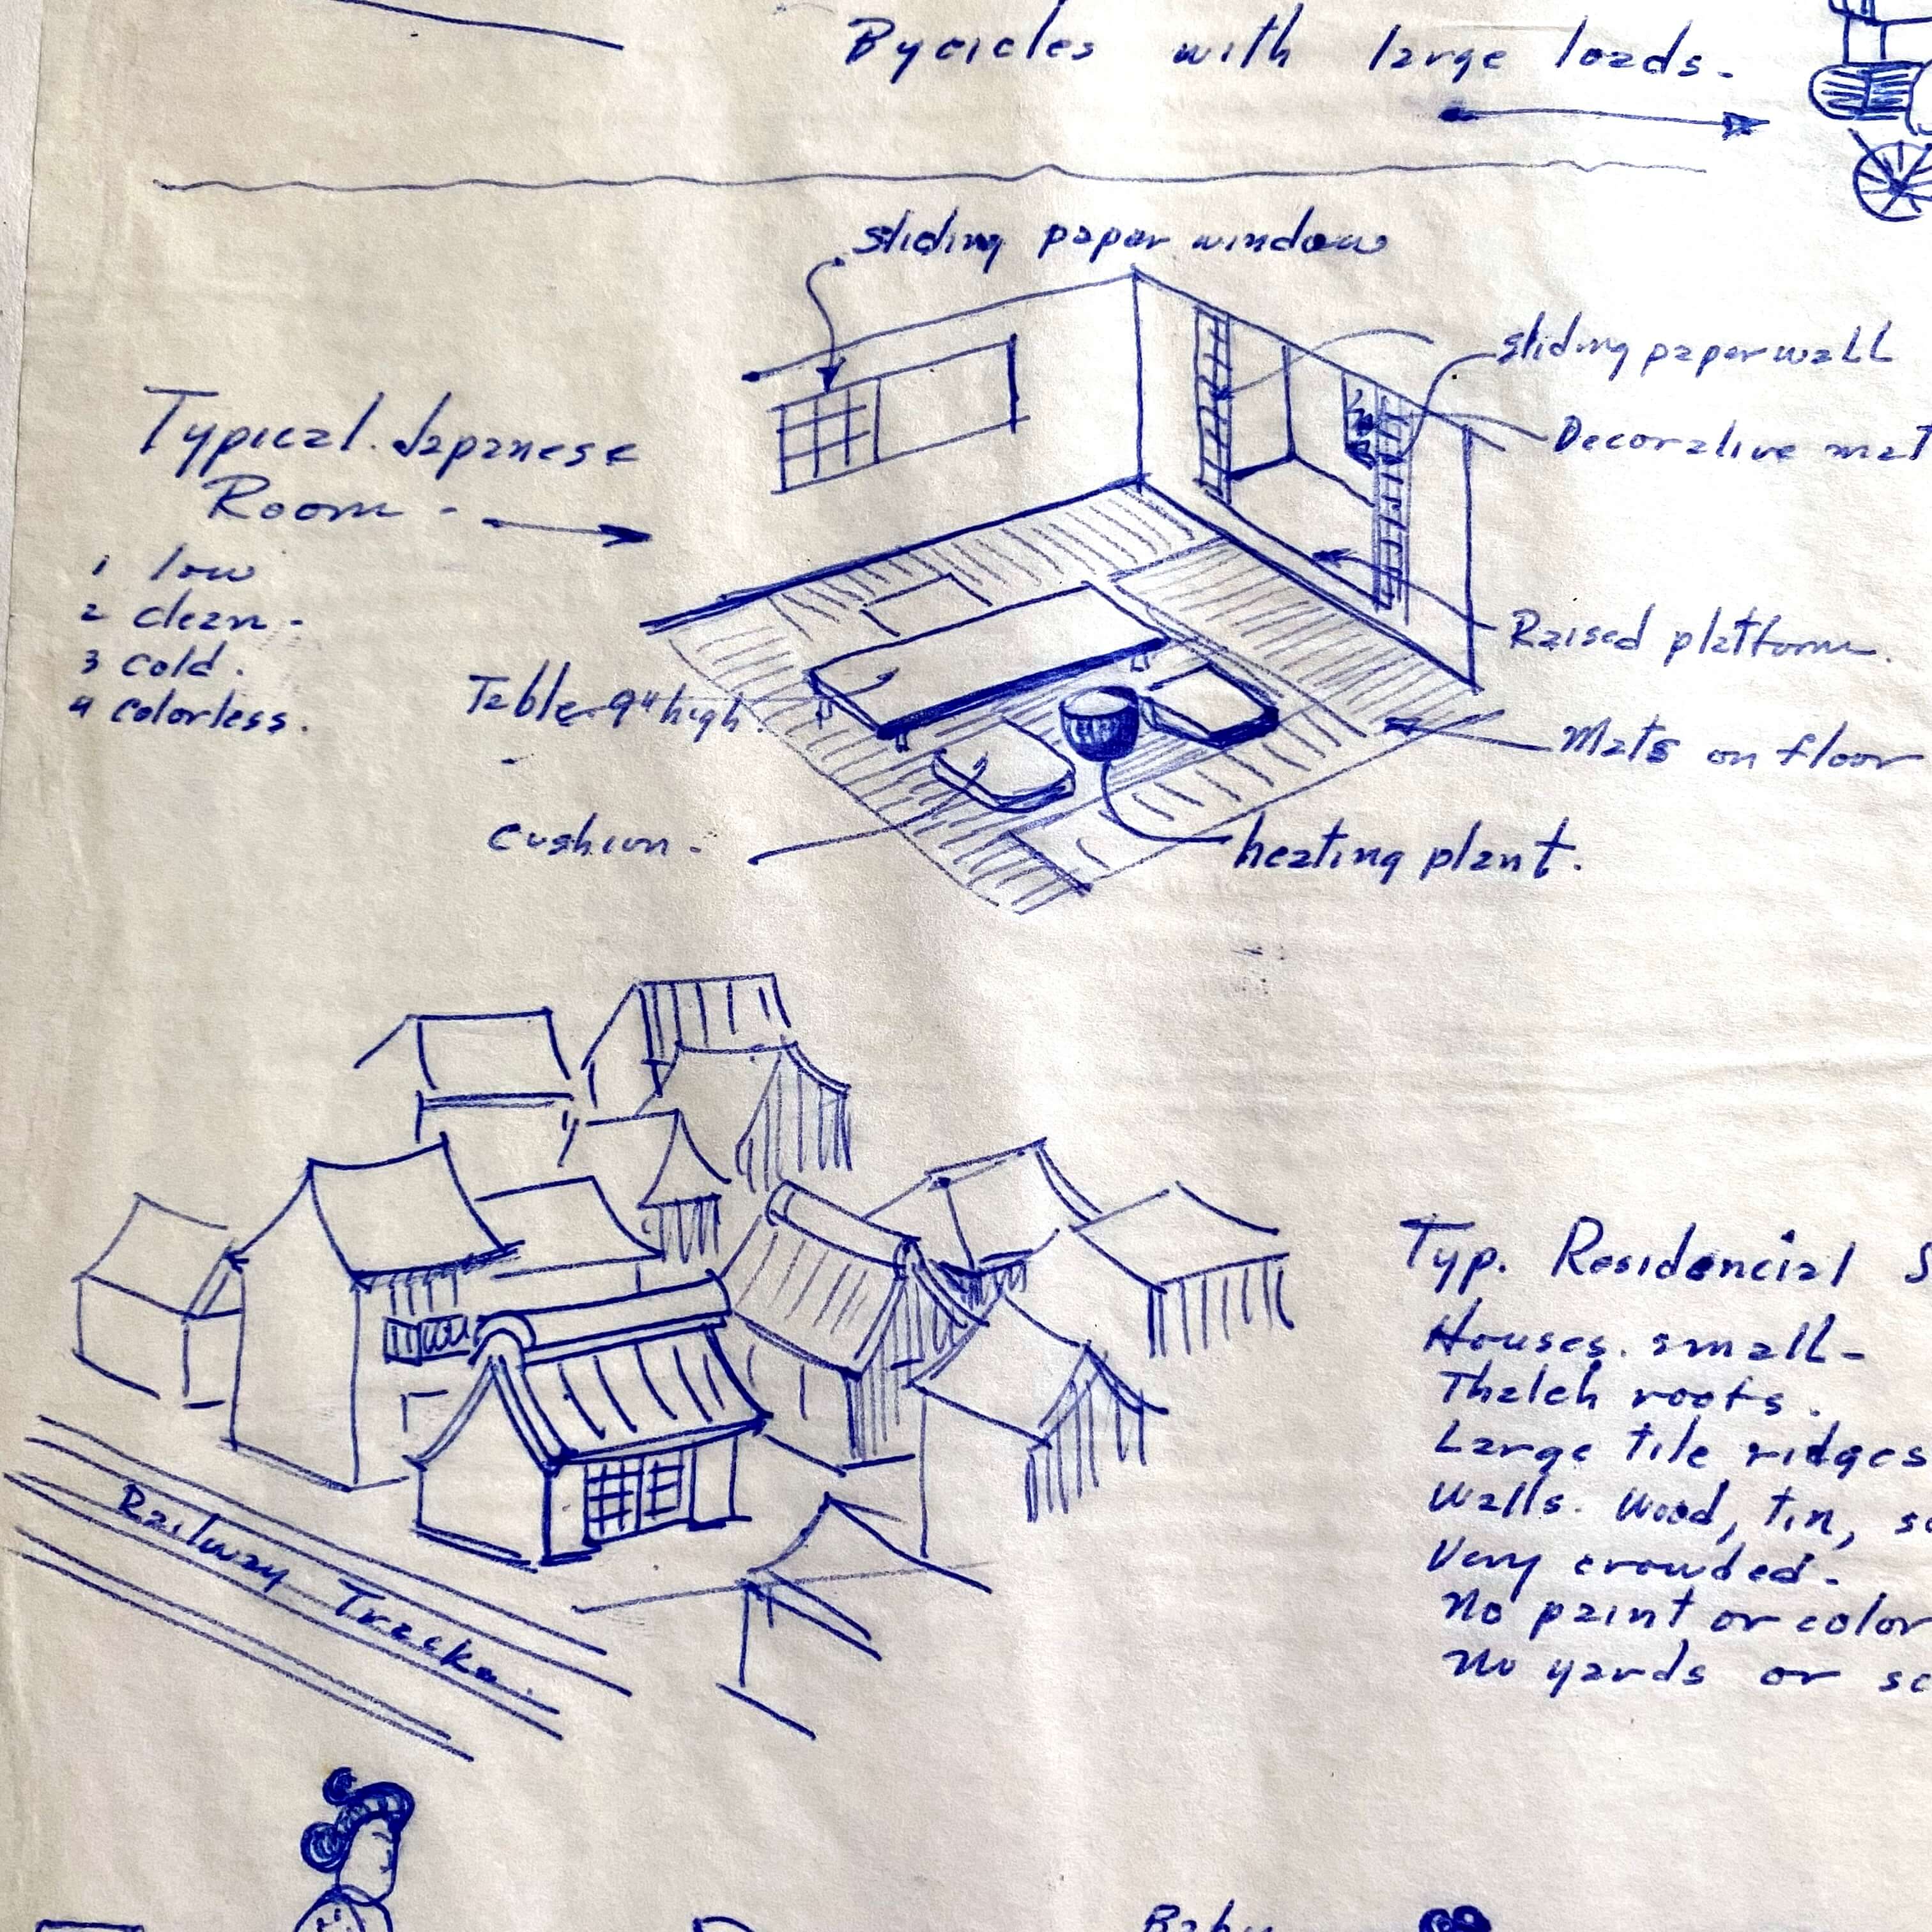 Bycicles with large loads.
sliding paper window
sliding paper wall
Decorative mat
Typical Japanese
Room -
1 low
2 clean -
3 cold.
4 colorless.
Raised platform.
Table 9" high.
Mats on floor
Cushion -
heating plant.
Typ. Residencial S
Houses. small -
Thatch roofs.
Large tile ridges
Walls. Wood, tin, s
Very crowded -
No paint or color
No yards or sc
Railway Tracks.
Baby